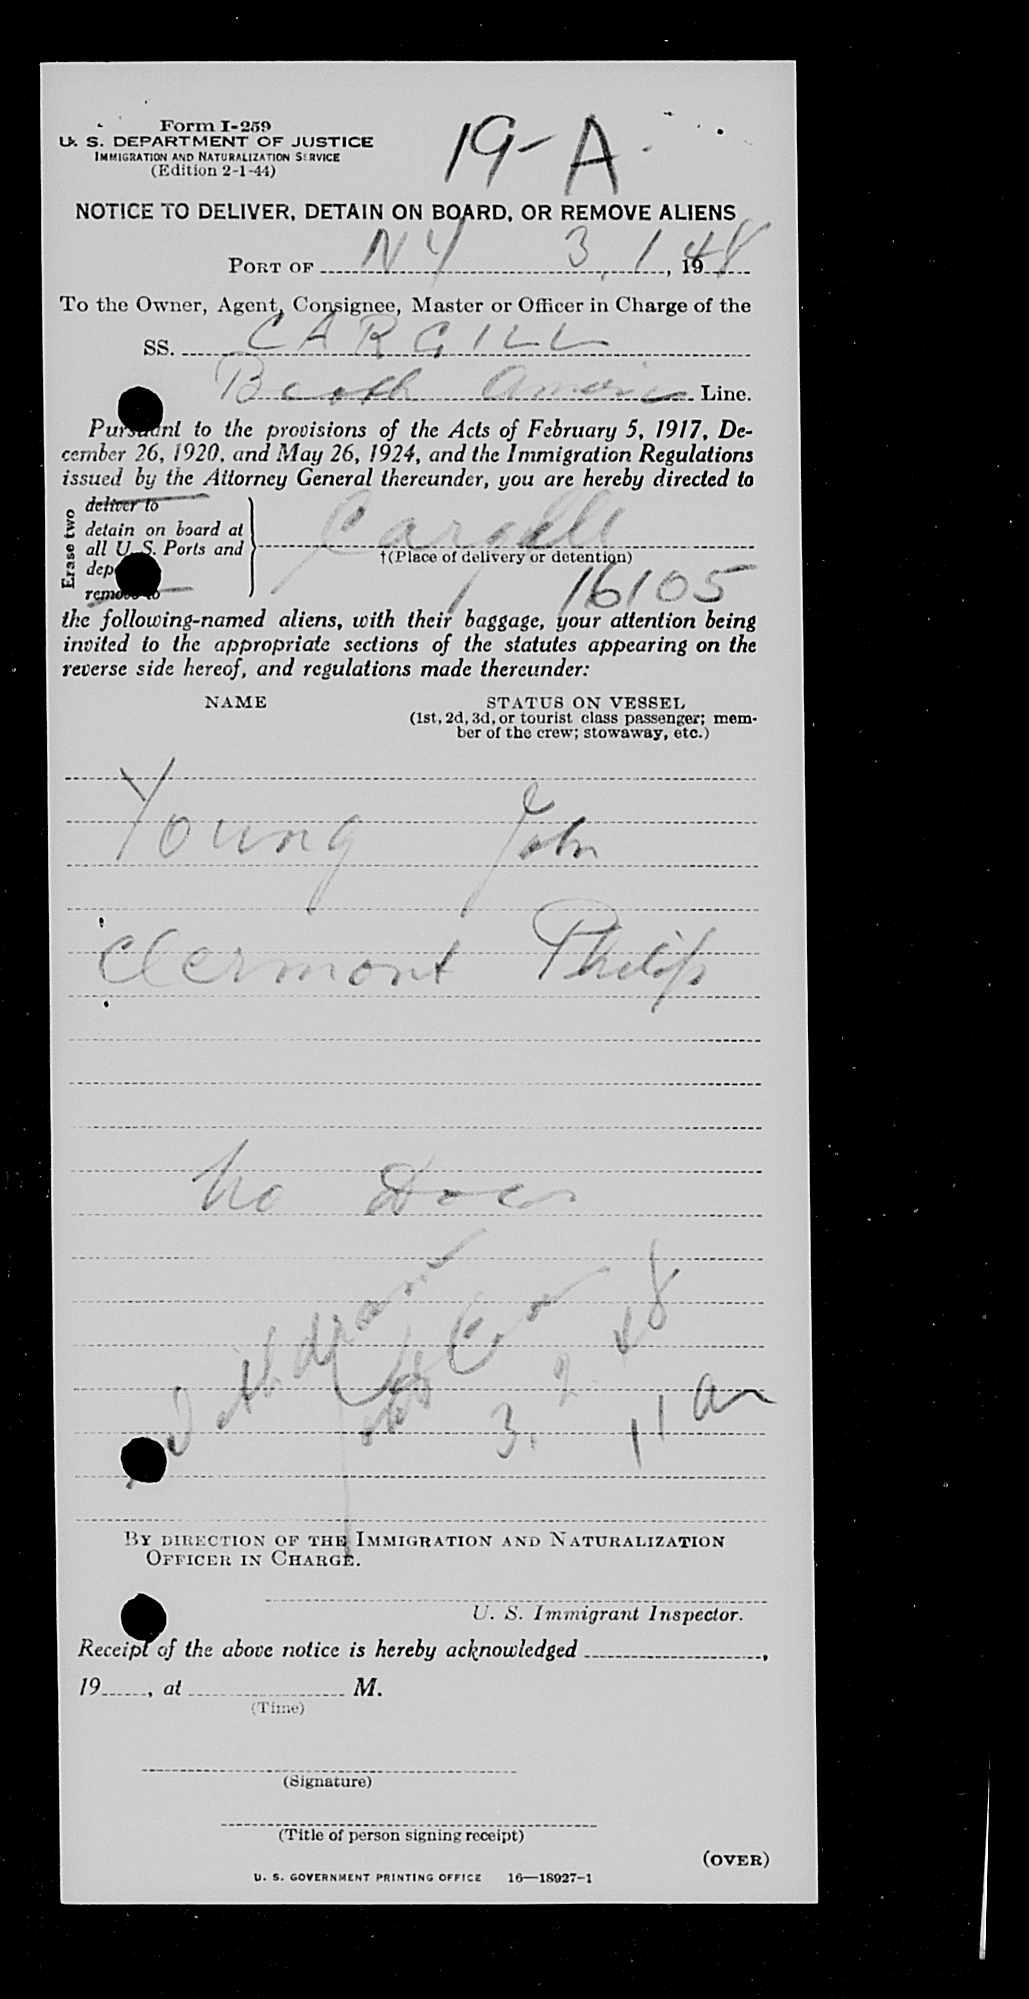 Form I-259
U. S. DEPARTMENT OF JUSTICE
IMMIGRATION AND NATURALIZATION SERVICE
(Edition 2-1-44)
19-A
NOTICE TO DELIVER, DETAIN ON BOARD, OR REMOVE ALIENS
PORT OF NY 3, 1, 1948
To the Owner, Agent, Consignee, Master or Officer in Charge of the
SS. CARGILL
Booth Americ Line.
Pursuant to the provisions of the Acts of February 5, 1917, De-
cember 26, 1920, and May 26, 1924, and the Immigration Regulations
issued by the Attorney General thereunder, you are hereby directed to
Erase two
deliver to
detain on board at
all U. S. Ports and
dep
remove to
Cargill
†(Place of delivery or detention)
16105
the following-named aliens, with their baggage, your attention being
invited to the appropriate sections of the statutes appearing on the
reverse side hereof, and regulations made thereunder:
NAME STATUS ON VESSEL
(1st, 2d, 3d, or tourist class passenger; mem-
ber of the crew; stowaway, etc.)
Young John
Clermont Philip
No Docs
3. 2. 48
11 am
BY DIRECTION OF THE IMMIGRATION AND NATURALIZATION
OFFICER IN CHARGE.
U. S. Immigrant Inspector.
Receipt of the above notice is hereby acknowledged ,
19 , at M.
(Time)
(Signature)
(Title of person signing receipt)
(OVER)
U. S. GOVERNMENT PRINTING OFFICE 16—18927-1